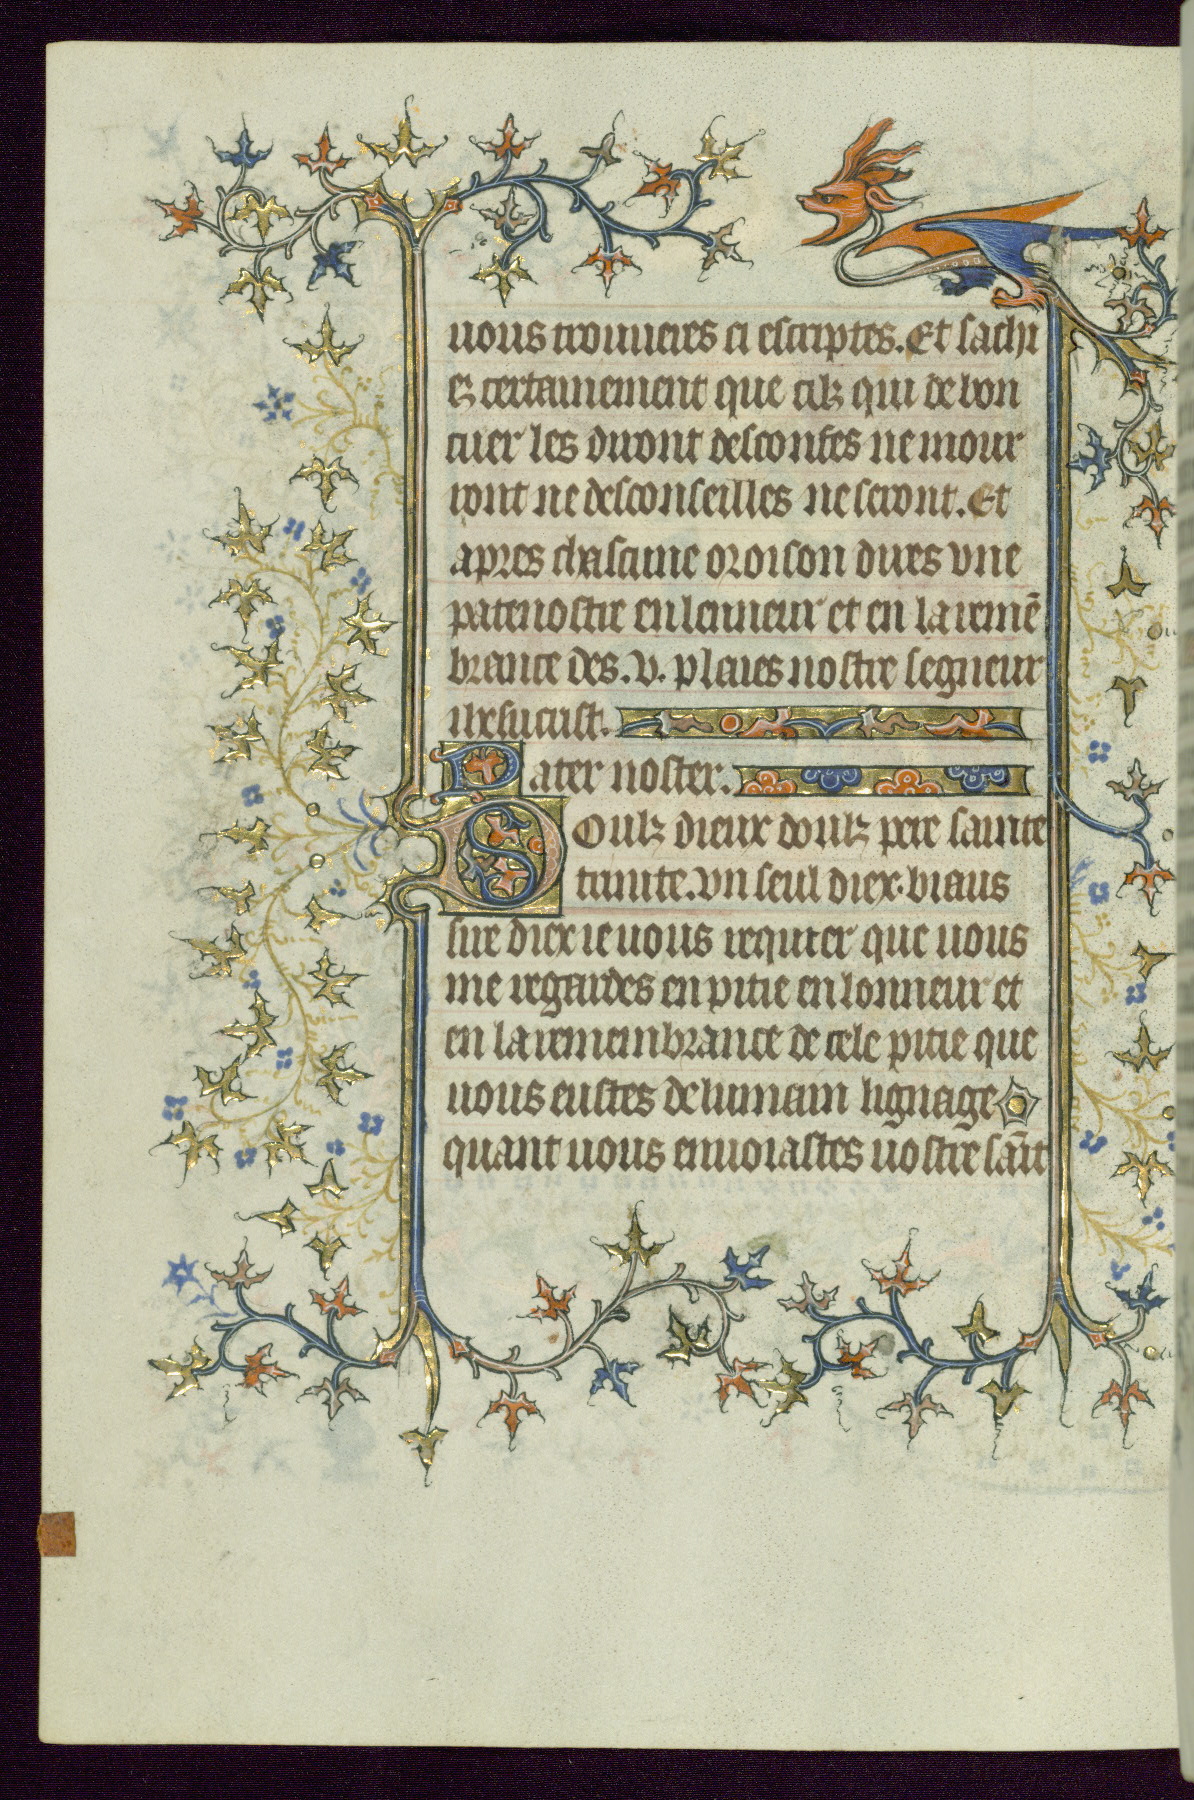 uous trouueres ci escriptes. Et sachi
es certainement que cilz qui de bon
cuer les diront desconfes ne mour
ront ne desconseilles ne seront. Et
apres chascune oroison dites vne
patenostre en lenneur et en la remē
brance des .v. plaies nostre segneur
ihesucrist.
Pater noster.
Doulz dieux doulz pere sainte
trinite. vn seul diex. biaus
sire diex ie uous requier que uous
me regardes en pitie en lonneur et
en la remembrance de cele pitie que
uous eustes de lumain lignage
quant uous enuoiastes uostre saīt